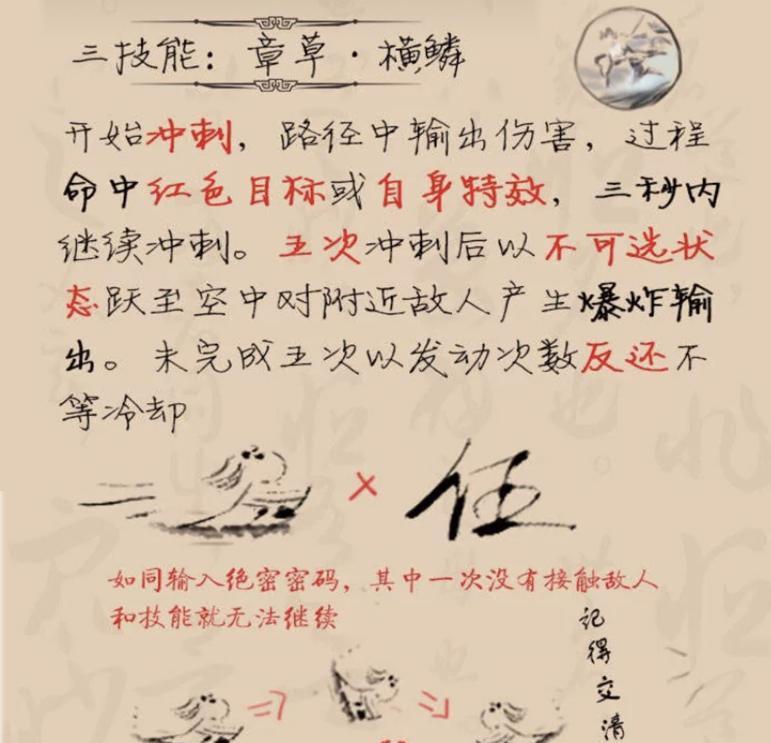 三技能：章草·横鳞
开始冲刺，路径中输出伤害，过程
命中红色目标或自身特效，三秒内
继续冲刺。五次冲刺后以不可选状
态跃至空中对附近敌人产生爆炸输
出。未完成五次以发动次数反还不
等冷却
×伍
如同输入绝密密码，其中一次没有接触敌人
和技能就无法继续
记得交清